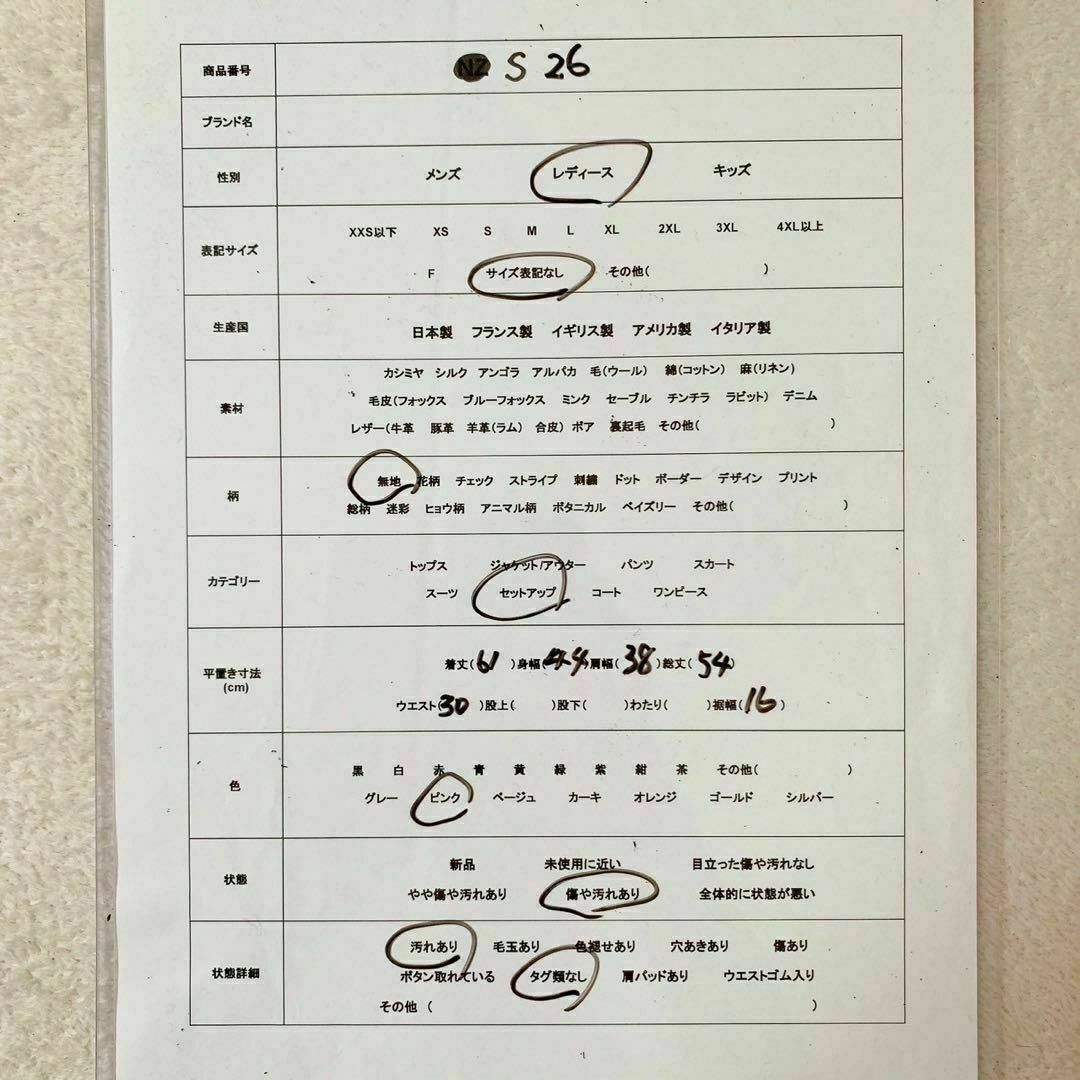 商品番号 NZ S 26
ブランド名
性別 メンズ レディース キッズ
表記サイズ
XXS以下 XS S M L XL 2XL 3XL 4XL以上
F サイズ表記なし その他( )
生産国 日本製 フランス製 イギリス製 アメリカ製 イタリア製
素材
カシミヤ シルク アンゴラ アルパカ 毛(ウール) 綿(コットン) 麻(リネン)
毛皮(フォックス ブルーフォックス ミンク セーブル チンチラ ラビット) デニム
レザー(牛革 豚革 羊革(ラム) 合皮) ボア 裏起毛 その他( )
柄
無地 花柄 チェック ストライプ 刺繍 ドット ボーダー デザイン プリント
総柄 迷彩 ヒョウ柄 アニマル柄 ボタニカル ペイズリー その他( )
カテゴリー
トップス ジャケット/アウター パンツ スカート
スーツ セットアップ コート ワンピース
平置き寸法
(cm)
着丈(61 )身幅(44)肩幅(38)総丈(54)
ウエスト(30 )股上( )股下( )わたり( )裾幅(16 )
色
黒 白 赤 青 黄 緑 紫 紺 茶 その他( )
グレー ピンク ベージュ カーキ オレンジ ゴールド シルバー
状態
新品 未使用に近い 目立った傷や汚れなし
やや傷や汚れあり 傷や汚れあり 全体的に状態が悪い
状態詳細
汚れあり 毛玉あり 色褪せあり 穴あきあり 傷あり
ボタン取れている タグ類なし 肩パッドあり ウエストゴム入り
その他 ( )